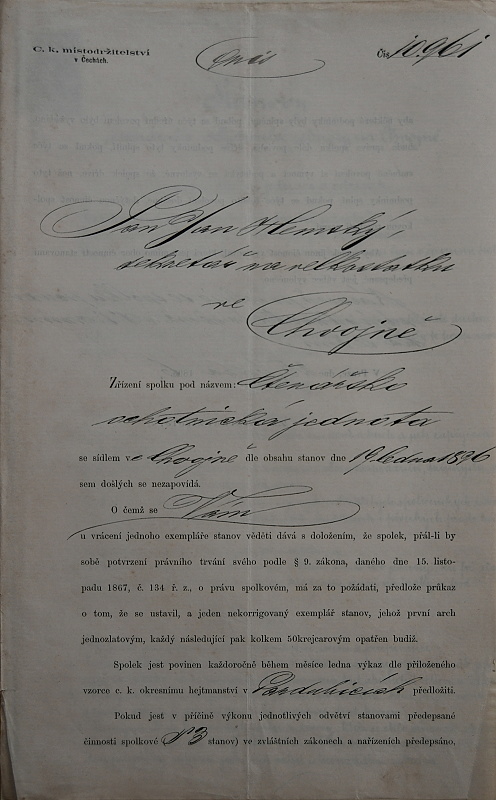 C. k. místodržitelství
v Čechách.
Opis
Čís. 10.961
Pan Jan Hlemský,
sekretář na velkostatku
ve
Chvojně
Zřízení spolku pod názvem: Čtenářsko
ochotnická jednota
se sídlem ve Chvojně dle obsahu stanov dne 19 ledna 1896
sem došlých se nezapovídá.
O čemž se Vám
u vrácení jednoho exempláře stanov věděti dává s doložením, že spolek, přál-li by
sobě potvrzení právního trvání svého podle § 9. zákona, daného dne 15. listo-
padu 1867, č. 134 ř. z., o právu spolkovém, má za to požádati, předlože průkaz
o tom, že se ustavil, a jeden nekorrigovaný exemplář stanov, jehož první arch
jednozlatovým, každý následující pak kolkem 50krejcarovým opatřen budiž.
Spolek jest povinen každoročně během měsíce ledna výkaz dle přiloženého
vzorce c. k. okresnímu hejtmanství v Pardubicích předložiti.
Pokud jest v příčině výkonu jednotlivých odvětví stanovami předepsané
činnosti spolkové (§ 3 stanov) ve zvláštních zákonech a nařízeních předepsáno,